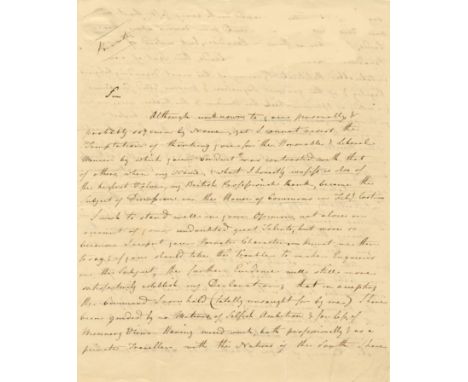 Private
Sir
Although unknown to you personally &
probably so, even by Name, yet I cannot resist the
Temptation of thanking you for the Honorable & liberal
Manner by which your Conduct was contrasted with that
of others when my Name, & what I honestly confess is also of
the highest Value, my British Professional Rank, became the
subject of Discussion in the House of Commons in Feb.y last
I wish to stand well in your Opinion, not alone on
account of your undoubted great Talents, but more so
because I respect your private Character
you should take the Trouble to make Enquiries
on the Subject, the Evidence will still more
satisfactorily establish my Declaration, that in accepting
the Command I now hold (totally unsought for by me) I have
been guided by no Motives of Selfish Ambition & far less of
Mercenary Views. Having mixed much, both professionally & as a
private Traveller, with the Natives of the South I have